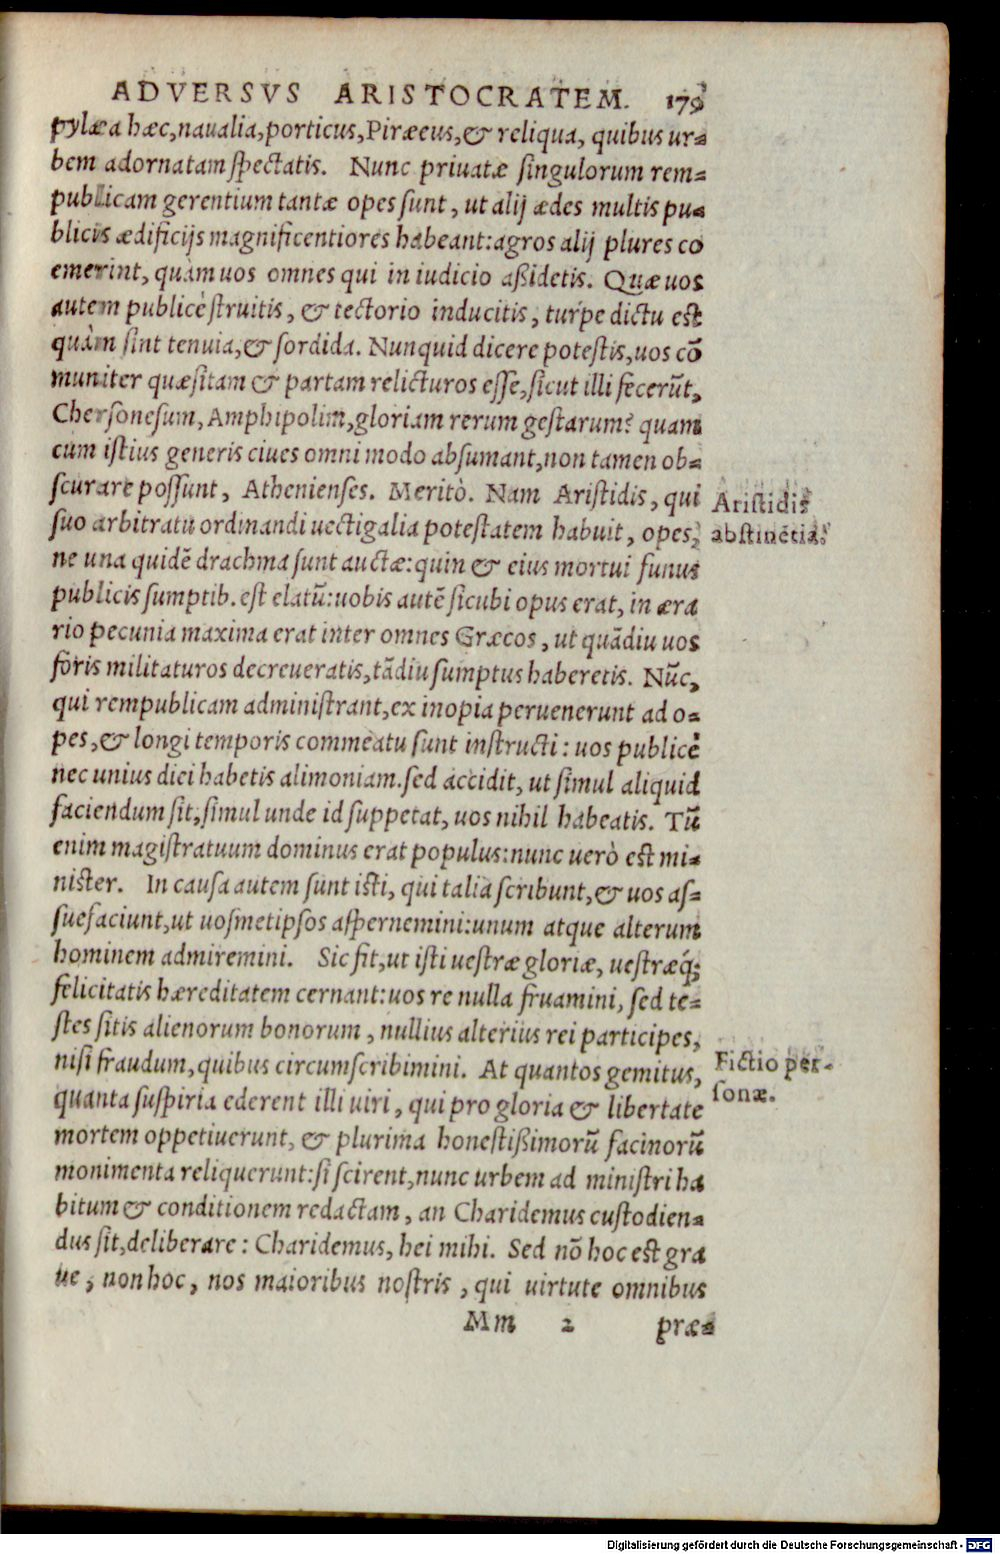 ADVERSVS ARISTOCRATEM. 179
pylæa hæc, naualia, porticus, Piræeus, & reliqua, quibus ur-
bem adornatam spectatis. Nunc priuatæ singulorum rem-
publicam gerentium tantæ opes sunt, ut alij ædes multis pu-
blicis ædificijs magnificentiores habeant: agros alij plures co
emerint, quàm uos omnes qui in iudicio aßidetis. Quæ uos
autem publicè struitis, & tectorio inducitis, turpe dictu est
quàm sint tenuia, & sordida. Nunquid dicere potestis, uos cō
muniter quæsitam & partam relicturos esse, sicut illi fecerūt,
Chersonesum, Amphipolim, gloriam rerum gestarum? quam
cum istius generis ciues omni modo absumant, non tamen ob-
scurare possunt, Athenienses. Meritò. Nam Aristidis, qui
suo arbitratu ordinandi uectigalia potestatem habuit, opes,
ne una quidē drachma sunt auctæ: quin & eius mortui funus
publicis sumptib. est elatū: uobis autē sicubi opus erat, in æra
rio pecunia maxima erat inter omnes Græcos, ut quādiu uos
foris militaturos decreueratis, tādiu sumptus haberetis. Nūc,
qui rempublicam administrant, ex inopia peruenerunt ad o-
pes, & longi temporis commeatu sunt instructi: uos publicè
nec unius diei habetis alimoniam. sed accidit, ut simul aliquid
faciendum sit, simul unde id suppetat, uos nihil habeatis. Tū
enim magistratuum dominus erat populus: nunc uerò est mi-
nister. In causa autem sunt isti, qui talia scribunt, & uos as-
suefaciunt, ut uosmetipsos aspernemini: unum atque alterum
hominem admiremini. Sic fit, ut isti uestræ gloriæ, uestræq;
felicitatis hæreditatem cernant: uos re nulla fruamini, sed te-
stes sitis alienorum bonorum, nullius alterius rei participes,
nisi fraudum, quibus circumscribimini. At quantos gemitus,
quanta suspiria ederent illi uiri, qui pro gloria & libertate
mortem oppetiuerunt, & plurima honestißimorū facinorū
monimenta reliquerunt: si scirent, nunc urbem ad ministri ha
bitum & conditionem redactam, an Charidemus custodien-
dus sit, deliberare: Charidemus, hei mihi. Sed nō hoc est gra
ue, non hoc, nos maioribus nostris, qui uirtute omnibus
Mm 2 præ-
Aristidis
abstinētia.
Fictio per-
sonæ.
Digitalisierung gefördert durch die Deutsche Forschungsgemeinschaft - DFG